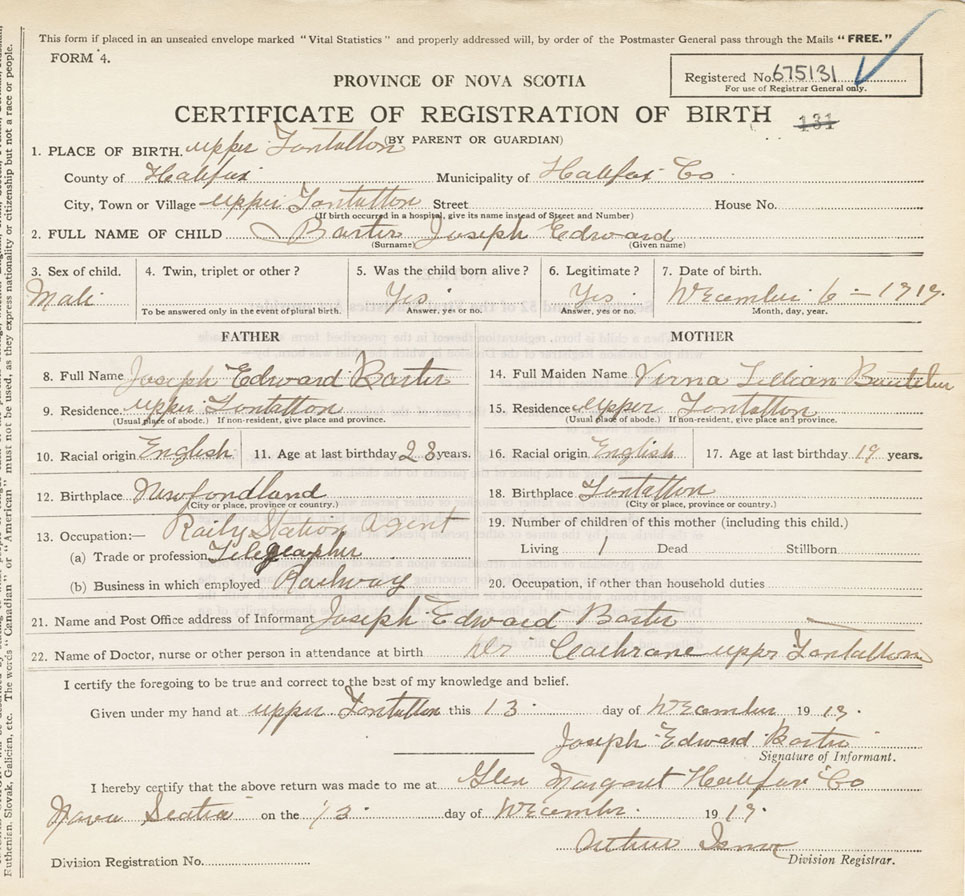 This form if placed in an unsealed envelope marked "Vital Statistics" and properly addressed will, by order of the Postmaster General pass through the Mails "FREE."
FORM 4.
Registered No. 675131
For use of Registrar General only.
PROVINCE OF NOVA SCOTIA
CERTIFICATE OF REGISTRATION OF BIRTH
131
(BY PARENT OR GUARDIAN)
1. PLACE OF BIRTH. upper Tontallon
County of Halifax Municipality of Halifax Co
City, Town or Village upper Tontallon Street House No.
(If birth occurred in a hospital, give its name instead of Street and Number)
2. FULL NAME OF CHILD Barter Joseph Edward
(Surname) (Given name)
3. Sex of child. 4. Twin, triplet or other? 5. Was the child born alive? 6. Legitimate? 7. Date of birth.
Male Yes Yes December 6 - 1919.
To be answered only in the event of plural birth. Answer, yes or no. Answer, yes or no. Month, day, year.
FATHER MOTHER
8. Full Name Joseph Edward Barter 14. Full Maiden Name Lillian
9. Residence. upper Tontallon 15. Residence upper Tontallon
(Usual place of abode.) If non-resident, give place and province. (Usual place of abode.) If non-resident, give place and province.
10. Racial origin English 11. Age at last birthday 28 years. 16. Racial origin English 17. Age at last birthday 19 years.
12. Birthplace Newfondland 18. Birthplace Tontallon
(City or place, province or country.) (City or place, province or country.)
13. Occupation:— Raily Station Agent 19. Number of children of this mother (including this child.)
(a) Trade or profession Telegrapher Living 1 Dead Stillborn
(b) Business in which employed Railway 20. Occupation, if other than household duties
21. Name and Post Office address of Informant Joseph Edward Barter
22. Name of Doctor, nurse or other person in attendance at birth Dr Cochrane upper Tontallon
I certify the foregoing to be true and correct to the best of my knowledge and belief.
Given under my hand at upper Tontallon this 13 day of December 1919.
Joseph Edward Barter
Signature of Informant.
I hereby certify that the above return was made to me at Glen Margaret Halifax Co
Nova Scotia on the 13 day of December 1919.
Arthur
Division Registration No. Division Registrar.
Ruthenian, Slovak, Galician, etc. The words "Canadian" or "American" must not be used, as they express nationality or citizenship but not a race or people.